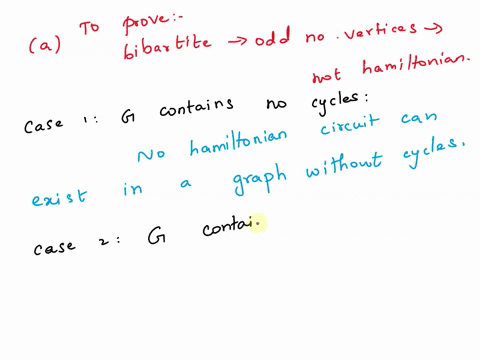 (a) To prove:-
bibartite → odd no. vertices →
not hamiltonian.
case 1: G contains no cycles:
No hamiltonian circuit can
exist in a graph without cycles.
case 2: G contai